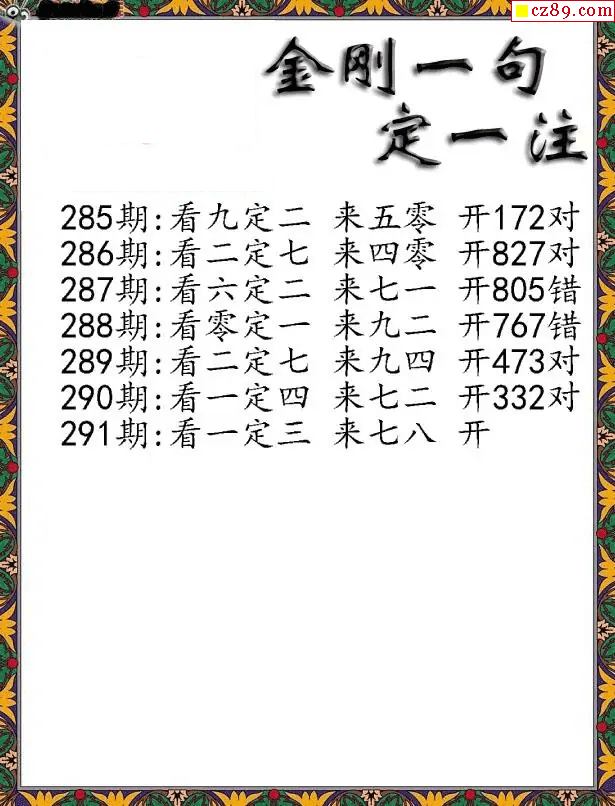 cz89.com
金刚一句
定一注
285期:看九定二 来五零 开172对
286期:看二定七 来四零 开827对
287期:看六定二 来七一 开805错
288期:看零定一 来九二 开767错
289期:看二定七 来九四 开473对
290期:看一定四 来七二 开332对
291期:看一定三 来七八 开